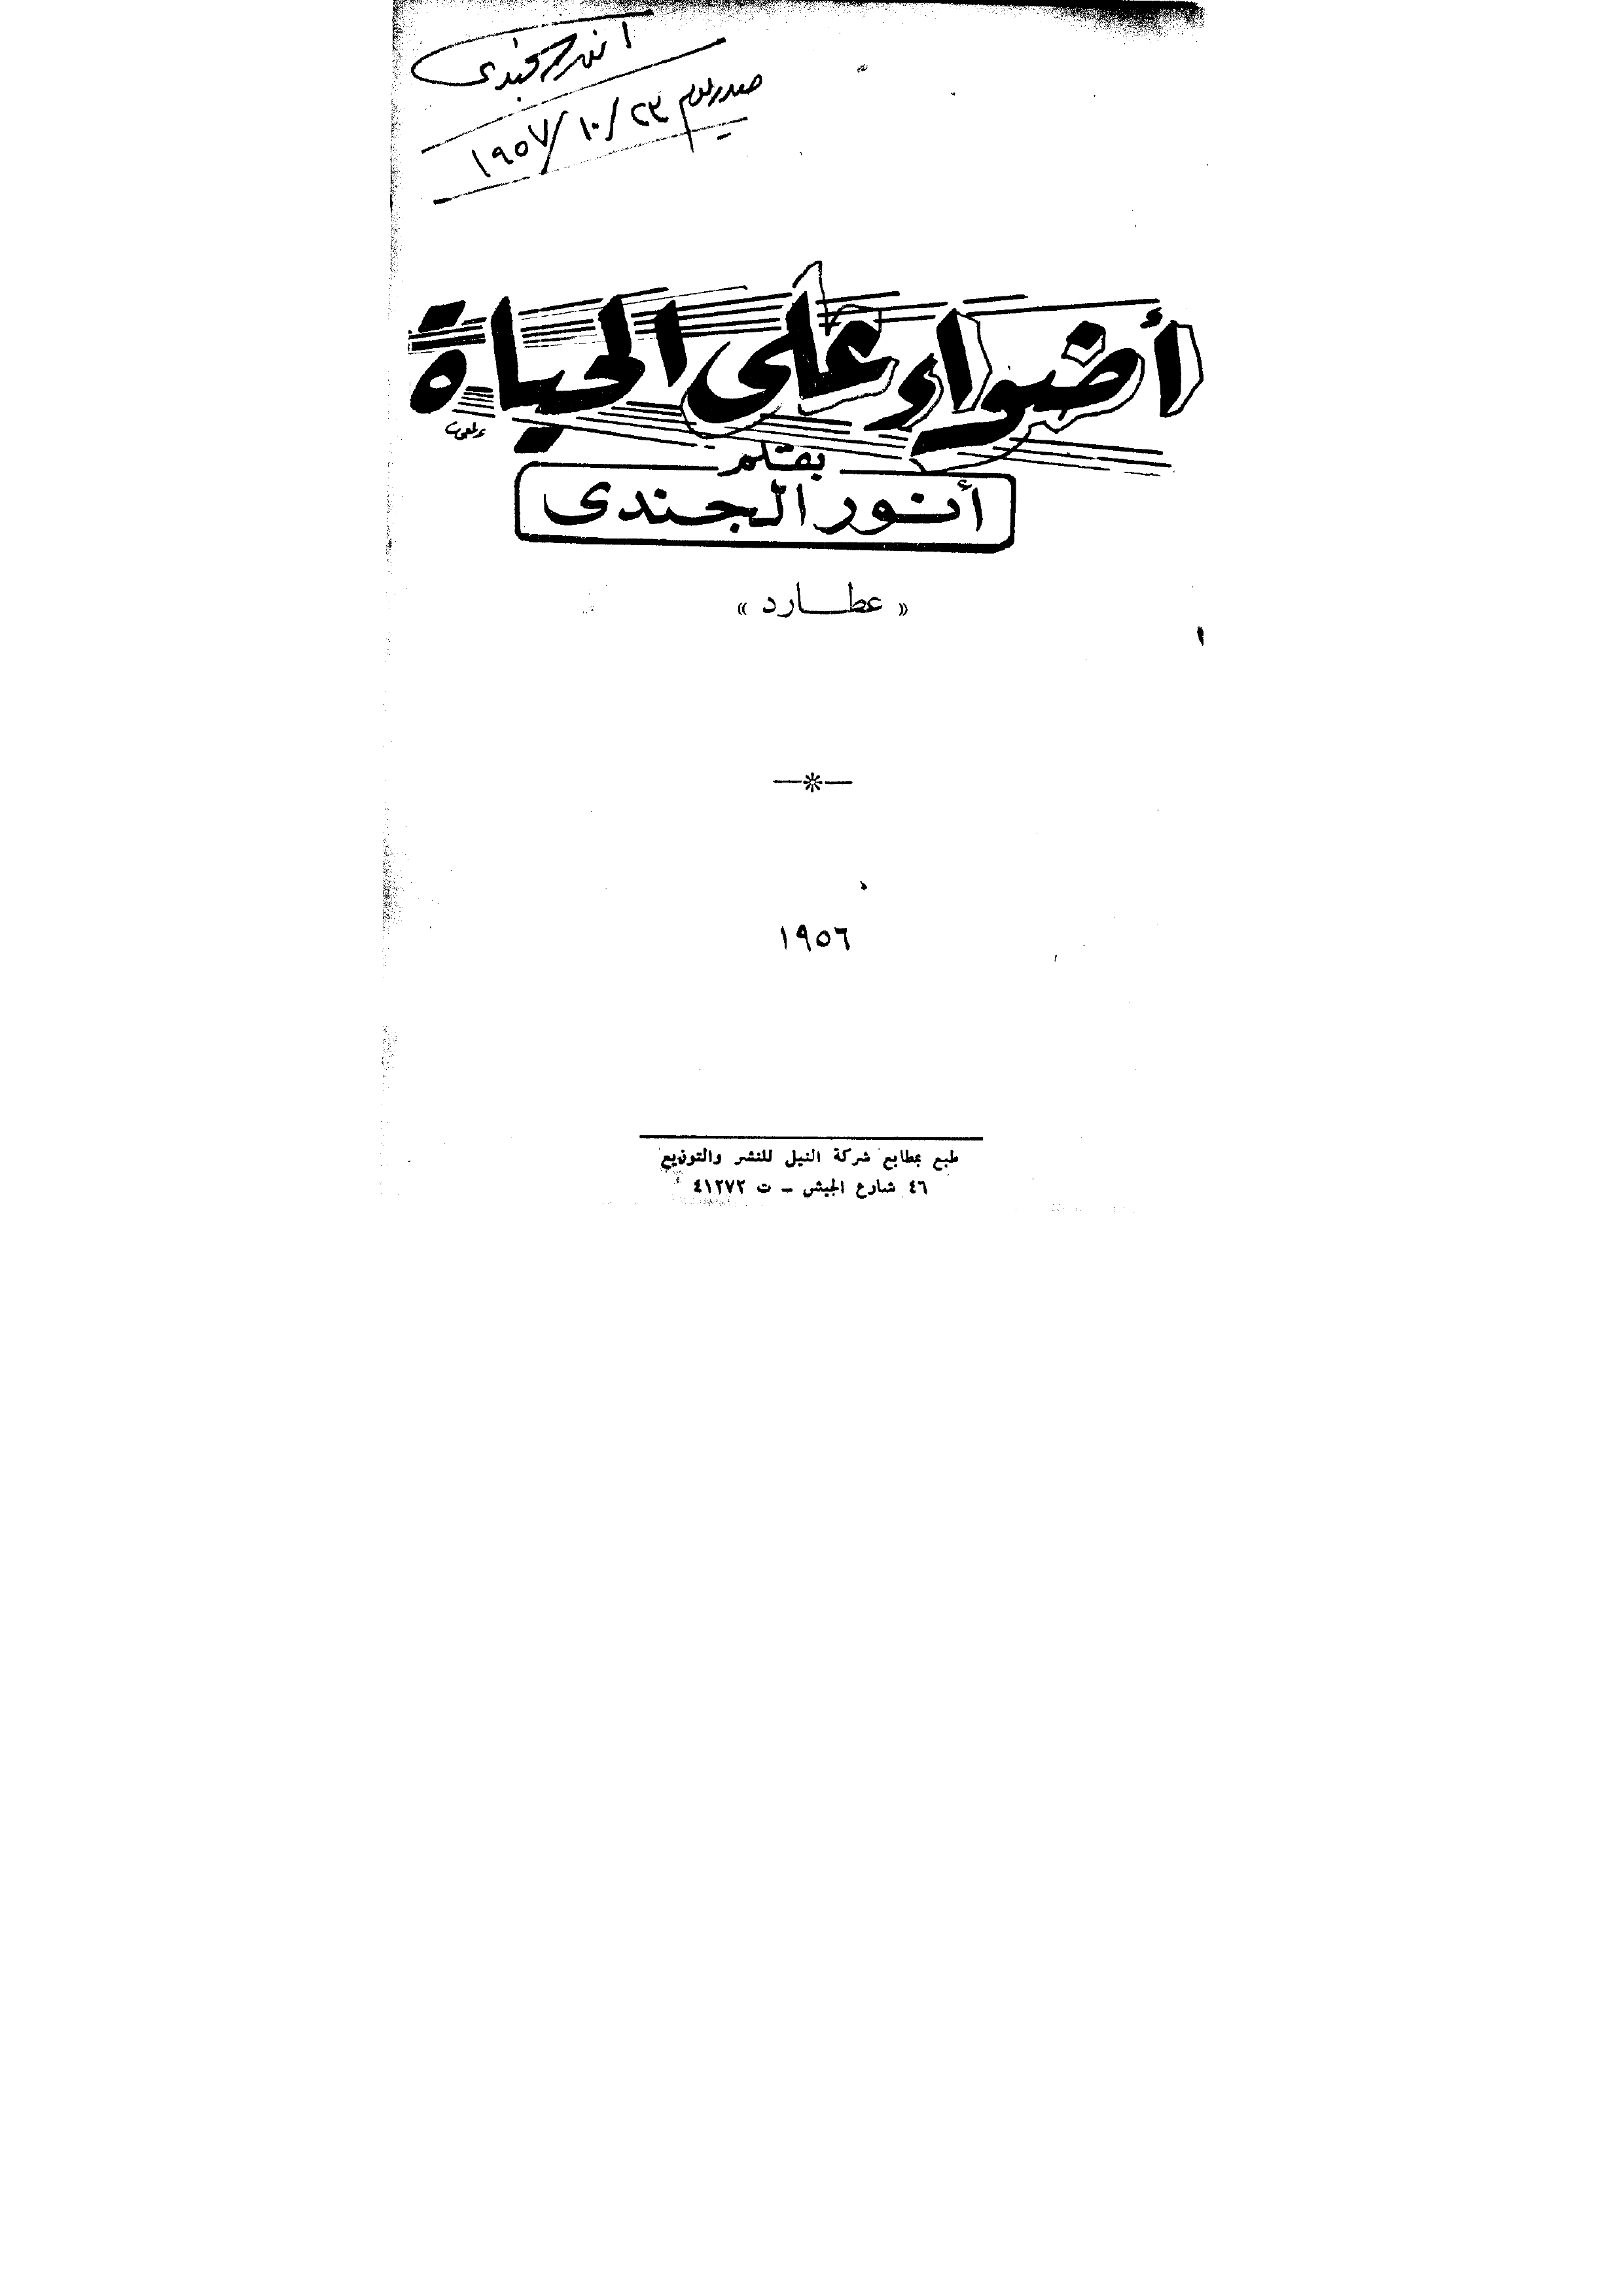 انور الجندى
صدر يوم ٢٣/١٠/١٩٥٧
أضواء على الحياة
بقلم
أنور الجندى
« عطارد »
١٩٥٦
طبع بمطابع شركة النيل للنشر والتوزيع
٤٦ شارع الجيش – ت ٤١٢٧٢